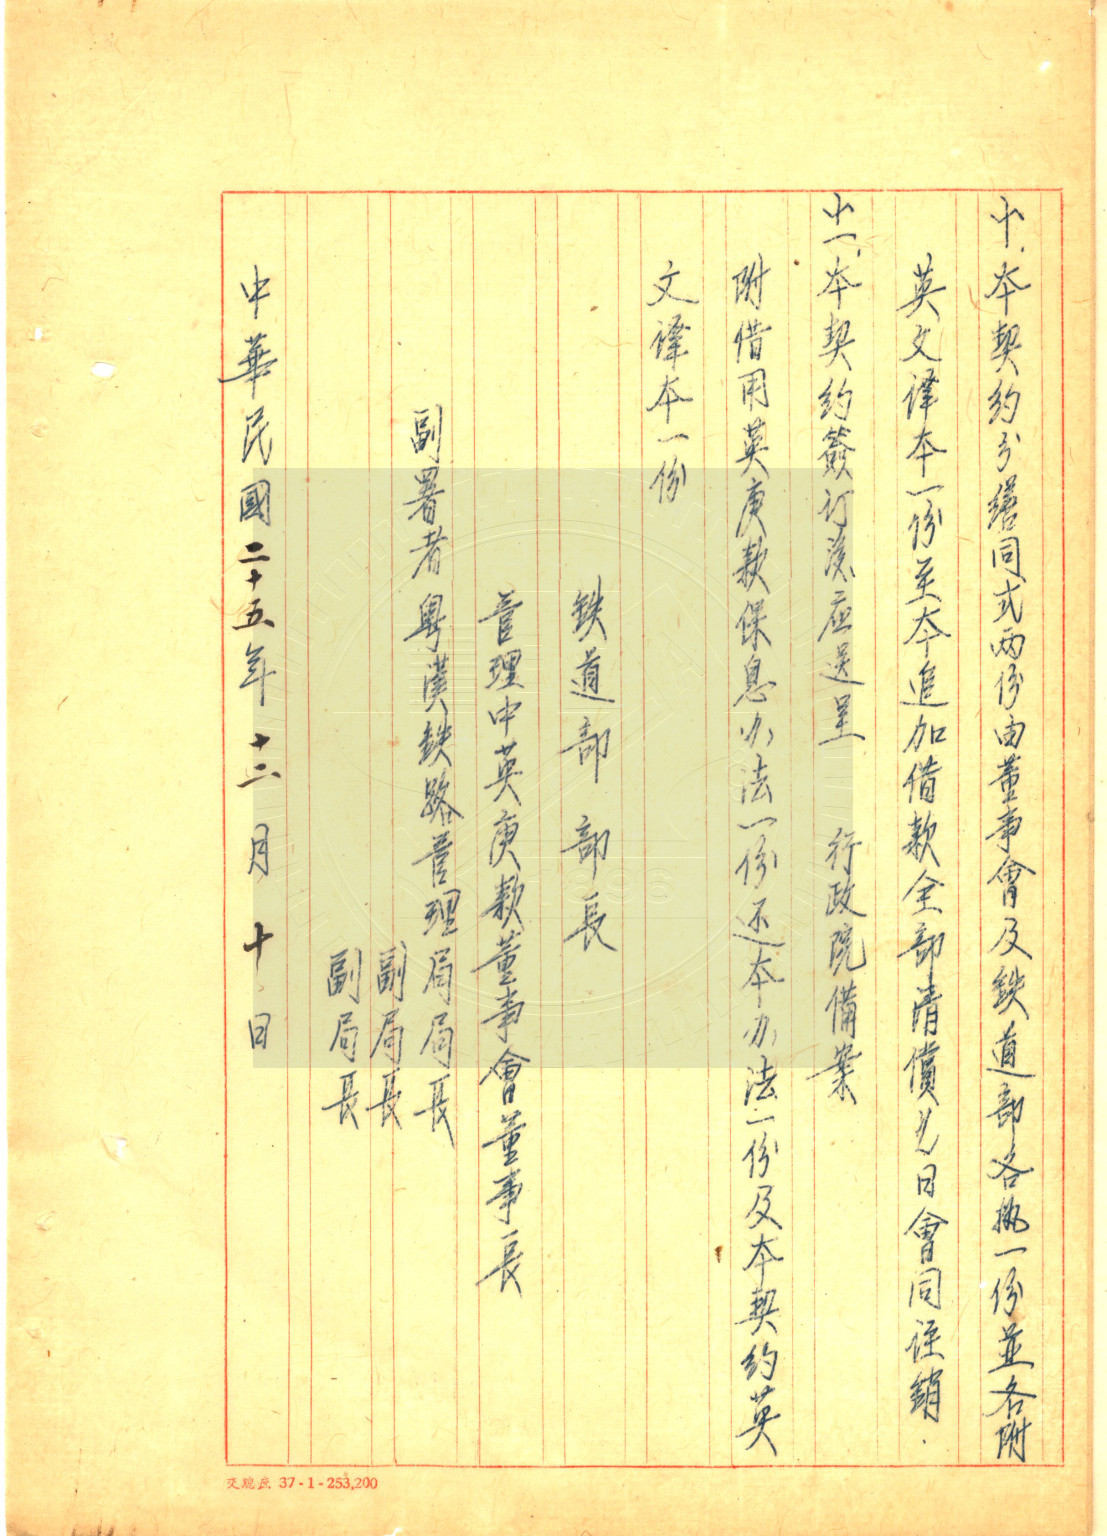 十.本契約分繕同式两份由董事會及鉄道部各执一份並各附
英文譯本一份至本追加借款全部清償之日會同註銷.
十一.本契約簽订後应送呈 行政院備案
附借用英庚款保息办法一份还本办法一份及本契約英
文譯本一份
鉄道部部長
管理中英庚款董事會董事長
副署者粤漢鉄路管理局局長
副局長
副局長
中華民國二十五年十二月十日
交總庶 37-1-253,200